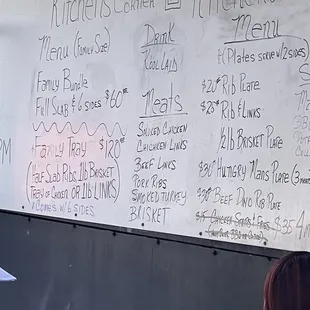 Kitchens Corner
Menu (Family Size)
Family Bundle
Full Slab & 6 sides $60
Family Tray $120
(Half Slab Ribs 1lb Brisket
Tray of Chicken or 2lb Links)
Comes w/ 6 sides
PM
Drink
Kool Laid
Meats
Smoked Chicken
Chicken Links
Beef Links
Pork Ribs
Smoked Turkey
Brisket
Menu
(Plates serve w/ 2 sides)
Rib Plate
Rib & Links
1/2lb Brisket Plate
Hungry Mans Plate (3
Beef Dino Rib Plate
Chicken & Fries $35